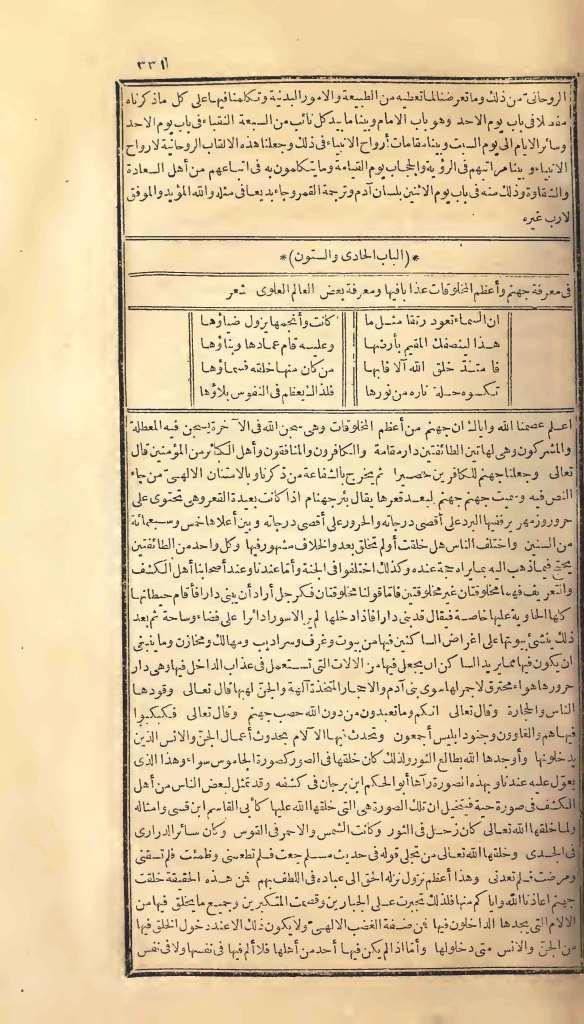 ٣٣١
الروحانية من ذلك وما تعرضنا لما تعطيه من الطبيعة والامور البدنية وتكلمنا فيها على كل ما ذكرناه
مفصلا فى باب يوم الاحد وهو باب الامام وبينا ما بيد كل نائب من السبعة النقباء فى باب يوم الاحد
وسائر الايام الى يوم السبت وبينا مقامات أرواح الانبياء فى ذلك وجعلنا هذه الالقاب الروحانية لارواح
الانبياء وبينا مراتبهم فى الرؤية والحجاب يوم القيامة وما يتكلمون به فى اتباعهم من أهل السعادة
والشقاوة وذلك منه فى باب يوم الاثنين بلسان آدم وترجمة القمر وجاء بديعا فى مثله والله المؤيد والموفق
لارب غيره
*(الباب الحادى والستون)*
فى معرفة جهنم وأعظم المخلوقات عذابا فيها ومعرفة بعض العالم العلوى شعر
ان السماء تعود رتقا مثل ما كانت وأنجمها يزول ضياؤها
هذا لينصفك المقيم بأرضها وعليه قام عمادها وبناؤها
خلق الله آلا قابها من كان منها خلقه فسماؤها
تكسوه حلة ناره من نورها فلذلك يعظم فى النفوس بلاؤها
اعلم عصمنا الله واياك ان جهنم من أعظم المخلوقات وهى سجن الله فى الآخرة يسجن فيه المعطلة
والمشركون وهى لهاتين الطائفتين دار مقامة والكافرون والمنافقون وأهل الكبائر من المؤمنين قال
تعالى وجعلنا جهنم للكافرين حصيرا ثم يخرج بالشفاعة من ذكرنا وبالامتنان الالهى من جاء
النص فيه وسميت جهنم جهنم لبعد قعرها يقال بئر جهنام اذا كانت بعيدة القعر وهى تحتوى على
حرور وزمهرير ففيها البرد على أقصى درجاته والحرور على أقصى درجاته وبين أعلاها خمس وسبعمائة
من السنين واختلف الناس هل خلقت أولم تخلق بعد والخلاف مشهور فيها وكل واحد من الطائفتين
يحتج فيما ذهب اليه بما يراه حجة عنده وكذلك اختلفوا فى الجنة وأما عندنا وعند أصحابنا أهل الكشف
والتعريف فهما مخلوقتان غير مخلوقتين فأما قولنا مخلوقتان فكرجل أراد أن يبنى دارا فأقام حيطانها
كلها الحاوية عليها خاصة فيقال قد بنى دارا فاذا دخلها لم ير الا سورا دائرا على فضاء وساحة ثم بعد
ذلك ينشئ بيوتها على اغراض الساكنين فيها من بيوت وغرف وسراديب ومهالك ومخازن وما ينبغى
ان يكون فيها مما يريد الساكن ان يجعل فيها من الآلات التى تستعمل فى عذاب الداخل فيها وهى دار
حرورها هواء محترق لا جمر لها سوى بنى آدم والاحجار المتخذة آلهة والجن لهبها قال تعالى وقودها
الناس والحجارة وقال تعالى انكم وما تعبدون من دون الله حصب جهنم وقال تعالى فكبكبوا
فيها هم والغاوون وجنود ابليس أجمعون وتحدث فيها الآلام بحدوث أعمال الجن والانس الذين
يدخلونها وأوجدها الله بطالع الثور ولذلك كان خلقها فى الصورة صورة الجاموس سواء وهذا الذى
يعوّل عليه عندنا وبهذه الصورة رآها أبو الحكم ابن برجان فى كشفه وقد تمثل لبعض الناس من أهل
الكشف فى صورة حية فيتخيل ان تلك الصورة هى التى خلقها الله عليها كابى القاسم ابن قسى وامثاله
ولما خلقها الله تعالى كان زحل فى الثور وكانت الشمس والاحمر فى القوس وكان سائر الدرارى
فى الجدى وخلقها الله تعالى من تجلى قوله فى حديث مسلم جعت فلم تطعمنى وظمئت فلم تسقنى
ومرضت فلم تعدنى وهذا أعظم نزول نزله الحق الى عباده فى اللطف بهم فمن هذه الحقيقة خلقت
جهنم اعاذنا الله واياكم منها فلذلك تجبرت على الجبارين وقصمت المتكبرين وجميع ما يخلق فيها من
الآلام التى يجدها الداخلون فيها فمن صفة الغضب الالهى ولا يكون ذلك الا عند دخول الخلق فيها
من الجن والانس متى دخلوها وأما اذا لم يكن فيها أحد من أهلها فلا ألم فيها فى نفسها ولا فى نفس